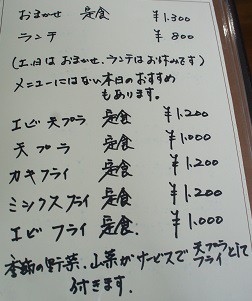 おまかせ 定食 ￥1.300
ランチ ￥800
(土.日はおまかせ、ランチはお休みです)
メニューにはない本日のおすすめ
もあります。
エビ天プラ 定食 ￥1.200
天プラ 定食 ￥1.000
カキフライ 定食 ￥1.200
ミックスフライ 定食 ￥1.200
エビフライ 定食. ￥1.000
季節の野菜、山菜がサービスで天プラ
フライとして
付きます.